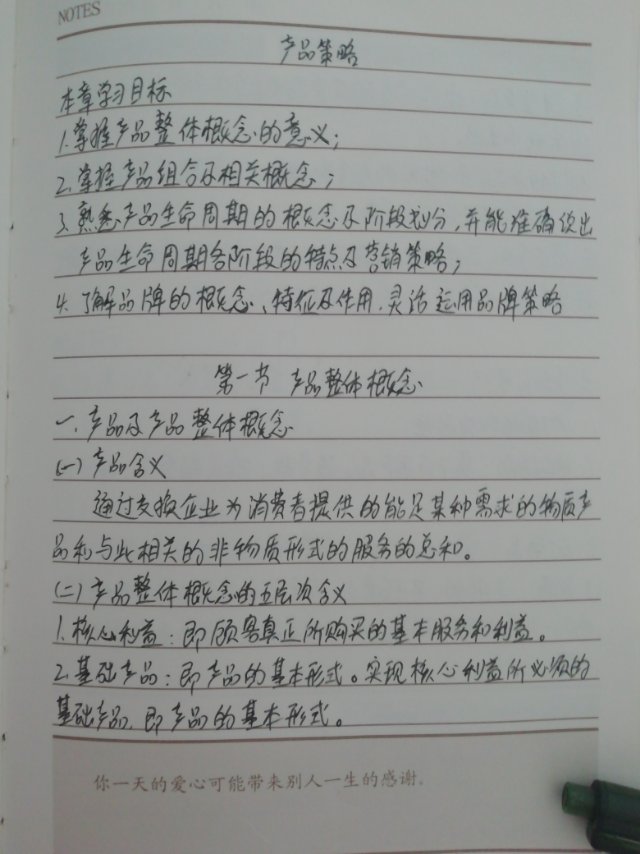 NOTES
产品策略
本章学习目标
1.掌握产品整体概念的意义;
2.掌握产品组合及相关概念;
3.熟悉产品生命周期的概念及阶段划分,并能准确说出
产品生命周期各阶段的特点及营销策略;
4.了解品牌的概念、特征及作用,灵活运用品牌策略
第一节 产品整体概念
一.产品及产品整体概念
(一)产品含义
通过交换企业为消费者提供的能足某种需求的物质产
品和与此相关的非物质形式的服务的总和。
(二)产品整体概念的五层次含义
1.核心利益:即顾客真正所购买的基本服务和利益。
2.基础产品:即产品的基本形式。实现核心利益所必须的
基础产品,即产品的基本形式。
你一天的爱心可能带来别人一生的感谢.